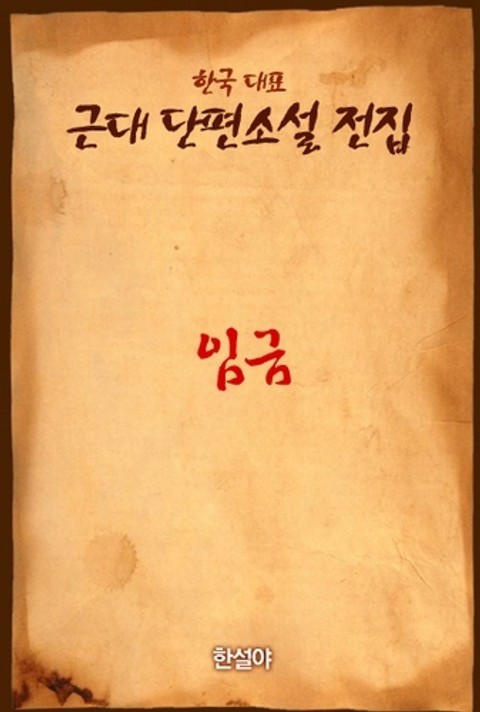 한국 대표
근대 단편소설 전집
임금
한설야